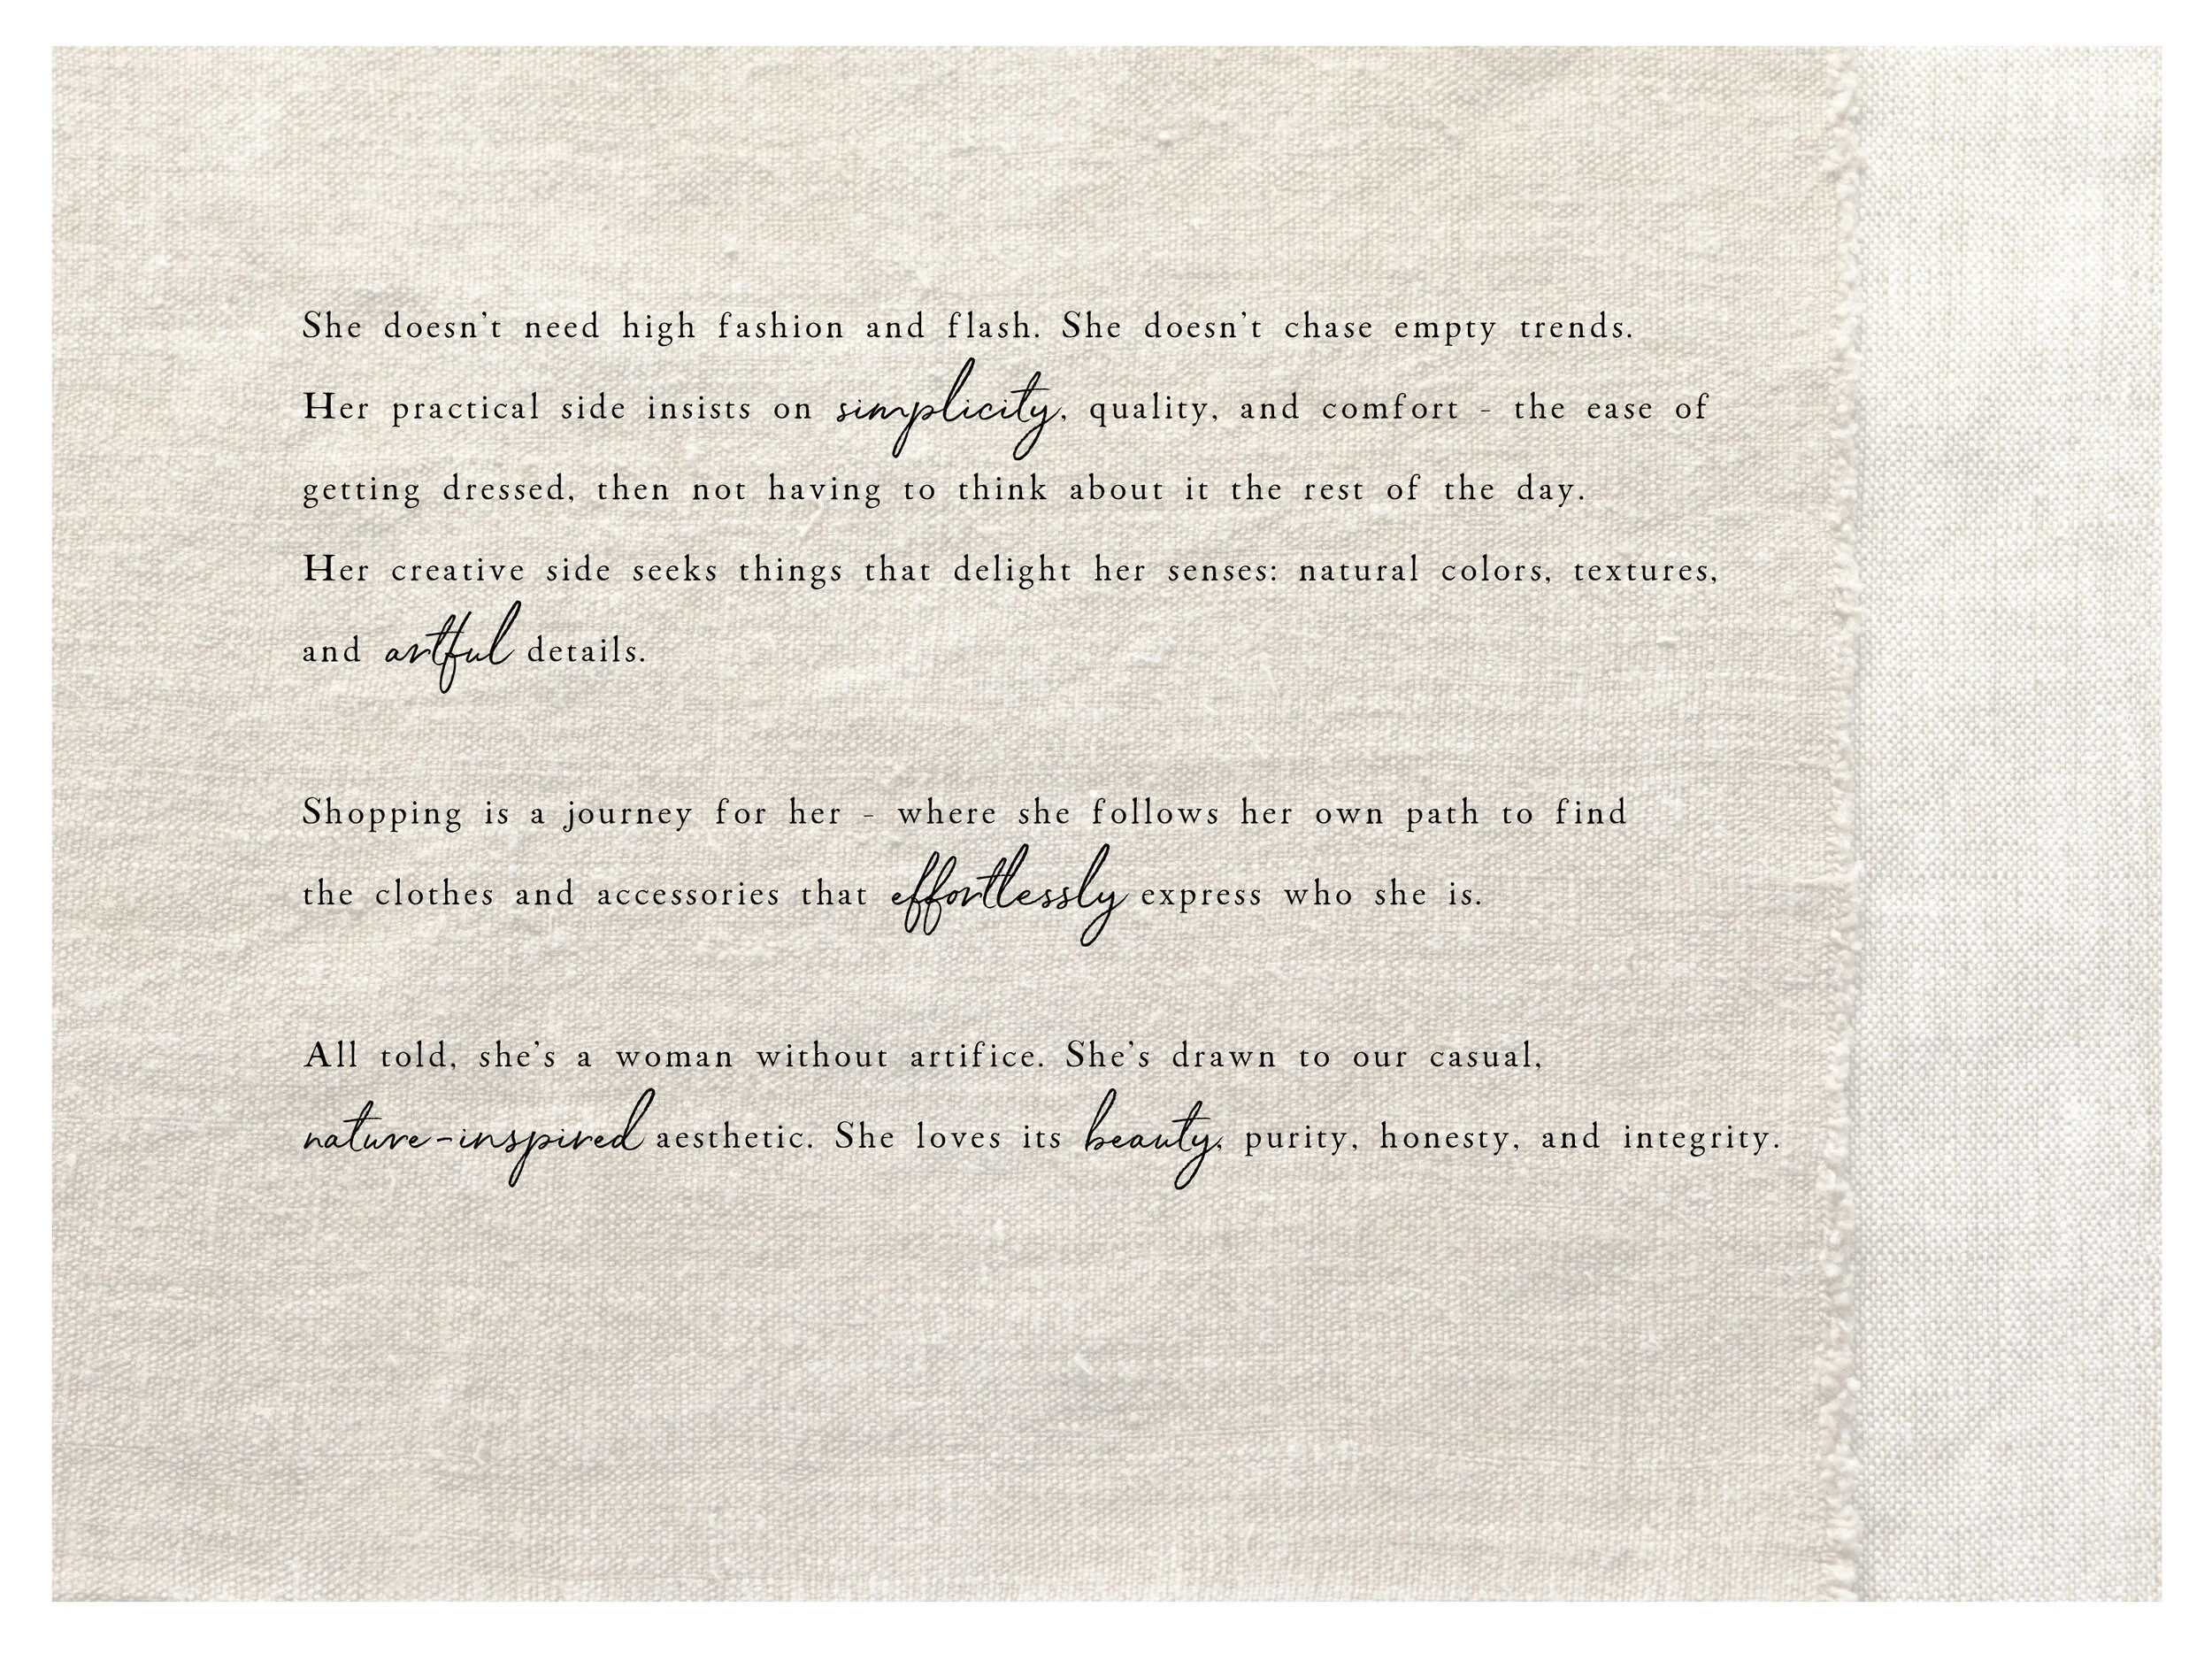 She doesn’t need high fashion and flash. She doesn’t chase empty trends.
Her practical side insists on simplicity, quality, and comfort - the ease of
getting dressed, then not having to think about it the rest of the day.
Her creative side seeks things that delight her senses: natural colors, textures,
and artful details.
Shopping is a journey for her - where she follows her own path to find
the clothes and accessories that effortlessly express who she is.
All told, she’s a woman without artifice. She’s drawn to our casual,
nature-inspired aesthetic. She loves its beauty, purity, honesty, and integrity.